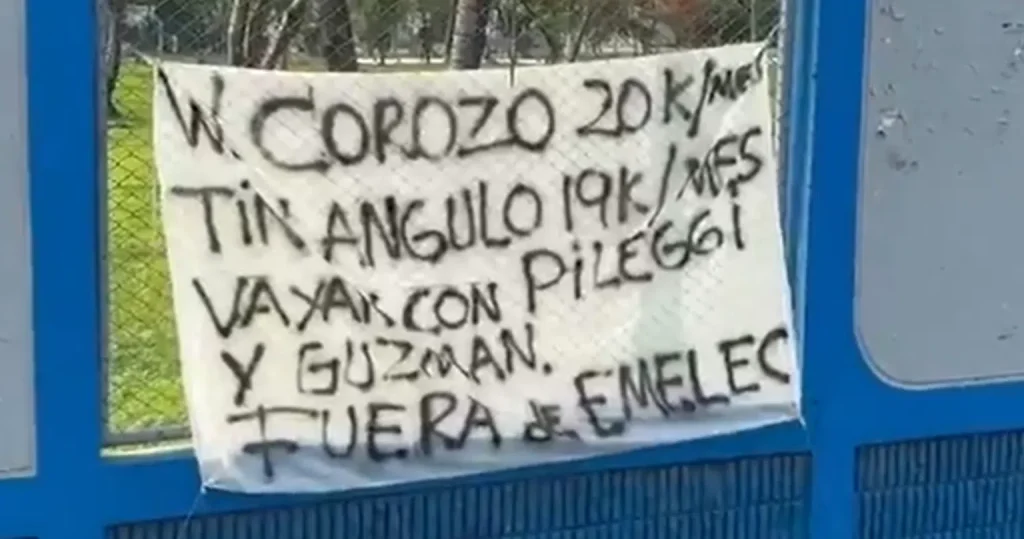 W. COROZO 20K/MES
TiN ANGULO 19K/MES
VAYAN CON PiLEGGi
Y GUZMAN.
FUERA de EMELEC